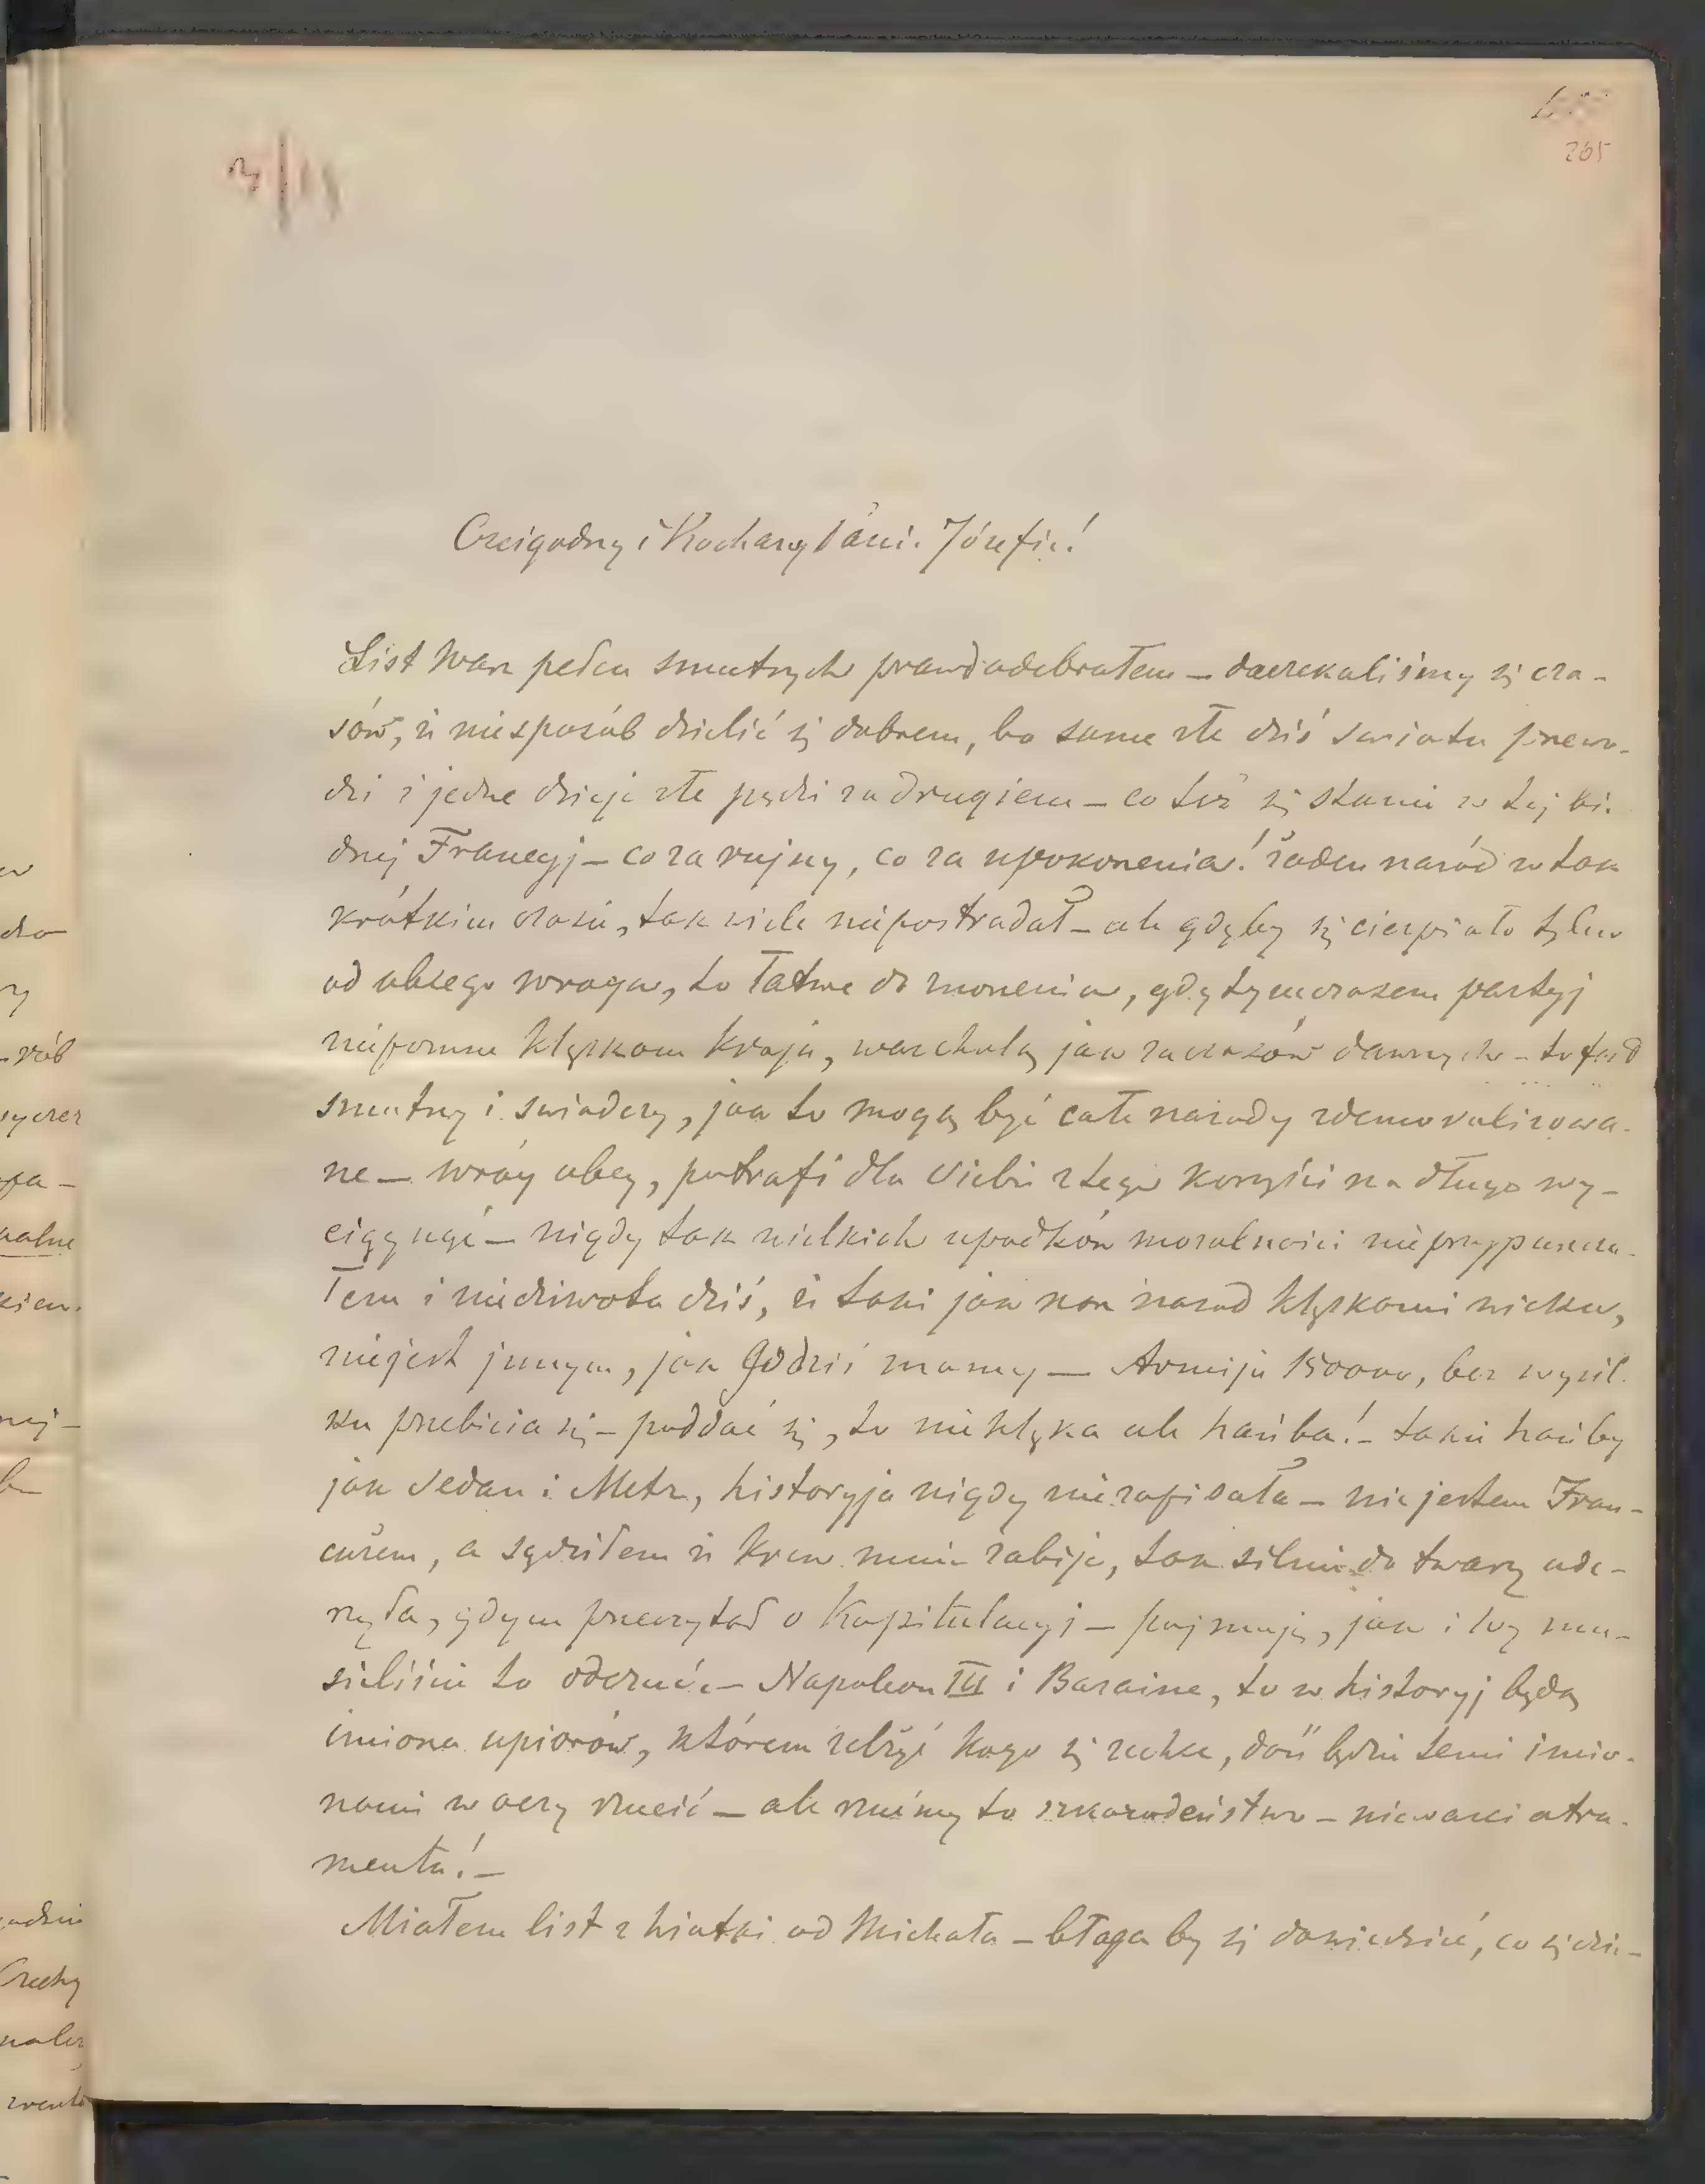 265
Czcigodny i Kochany Panie Józefie!
List Wasz pełen smutnych prawd odebrałem – doczekaliśmy się cza-
sów, iż niesposób dzielić się dobrem, bo same złe dziś światu przewo-
dzi i jedne dzieje złe pędzi za drugiem – co też się stanie z tej bie-
dnej Francyj – co za rujny, co za upokorzenia! żaden naród w tak
krótkim czasie, tak wiele niepostradał – ale gdyby się cierpiało tylko
od obcego wroga, to łatwe do znoszenia, gdy tymczasem partyj
niepomne klęskom kraju, warcholą jak za czasów dawnych – to fakt
smutny i świadczy, jak to mogą być całe narody zdemoralizowa-
ne – wróg obcy, potrafi dla siebie z tego korzyści na długo wy-
ciągnąć – nigdy tak wielkich upadków moralności nieprzypuszcza-
łem i niedziwota dziś, iż taki jak nasz naród klęskami wieku,
niejest innym, jak go dziś mamy – Armija 150000, bez wysił-
ku przebicia się – poddać się, to nie klęska ale hańba! – takie hańby
jak Sedan i Metz, historyja nigdy niezapisała – nie jestem Fran-
cuzem, a sądziłem iż krew mnie zabije, tak silnie do twarzy ude-
rzyła, gdym przeczytał o kapitulacyj – pojmuję, jak i Wy mu-
sieliście to odczuć. – Napoleon III i Bazaine, to w historyj będą
imiona upiorów, którem zelżyć kogo się zechce, dość będzie temi imio-
nami w oczy rzucić – ale rzućmy to szkaradeństwo – niewarci atra-
mentu! –
Miałem list z Wiatki od Michała – błaga by się dowiedzieć, co się dzie-